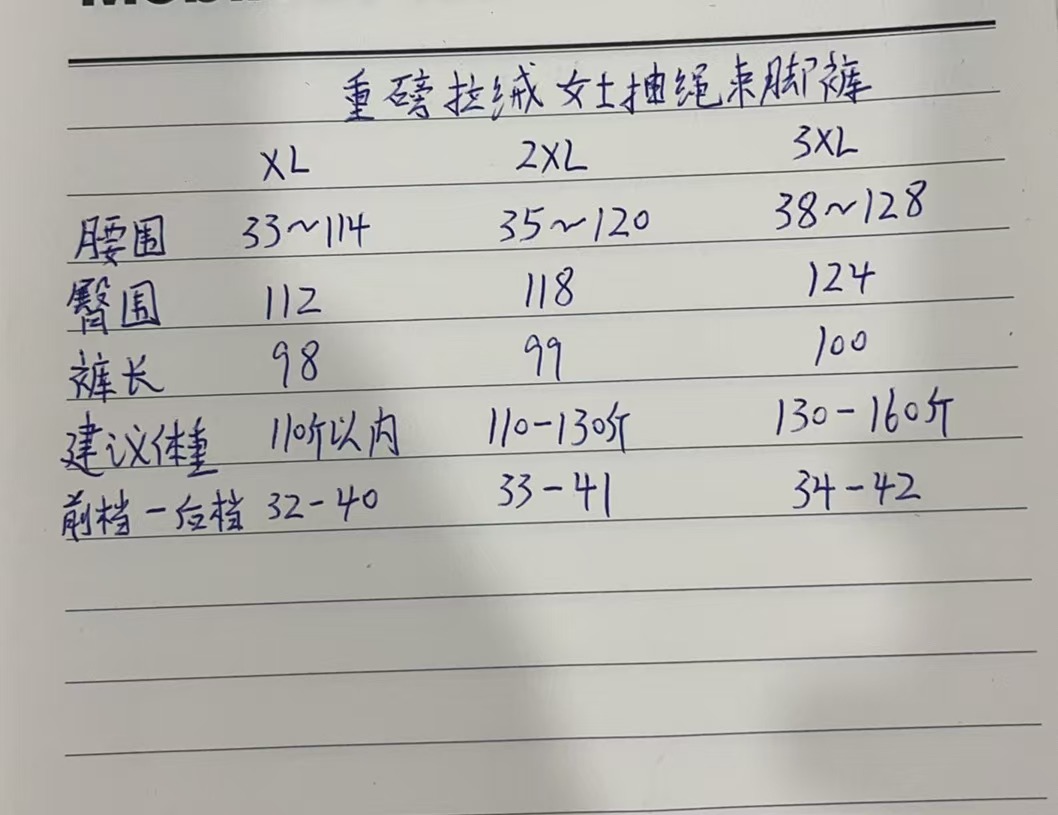 重磅拉绒女士抽绳束脚裤
XL 2XL 3XL
腰围 33~114 35~120 38~128
臀围 112 118 124
裤长 98 99 100
建议体重 110斤以内 110-130斤 130-160斤
前档-后档 32-40 33-41 34-42